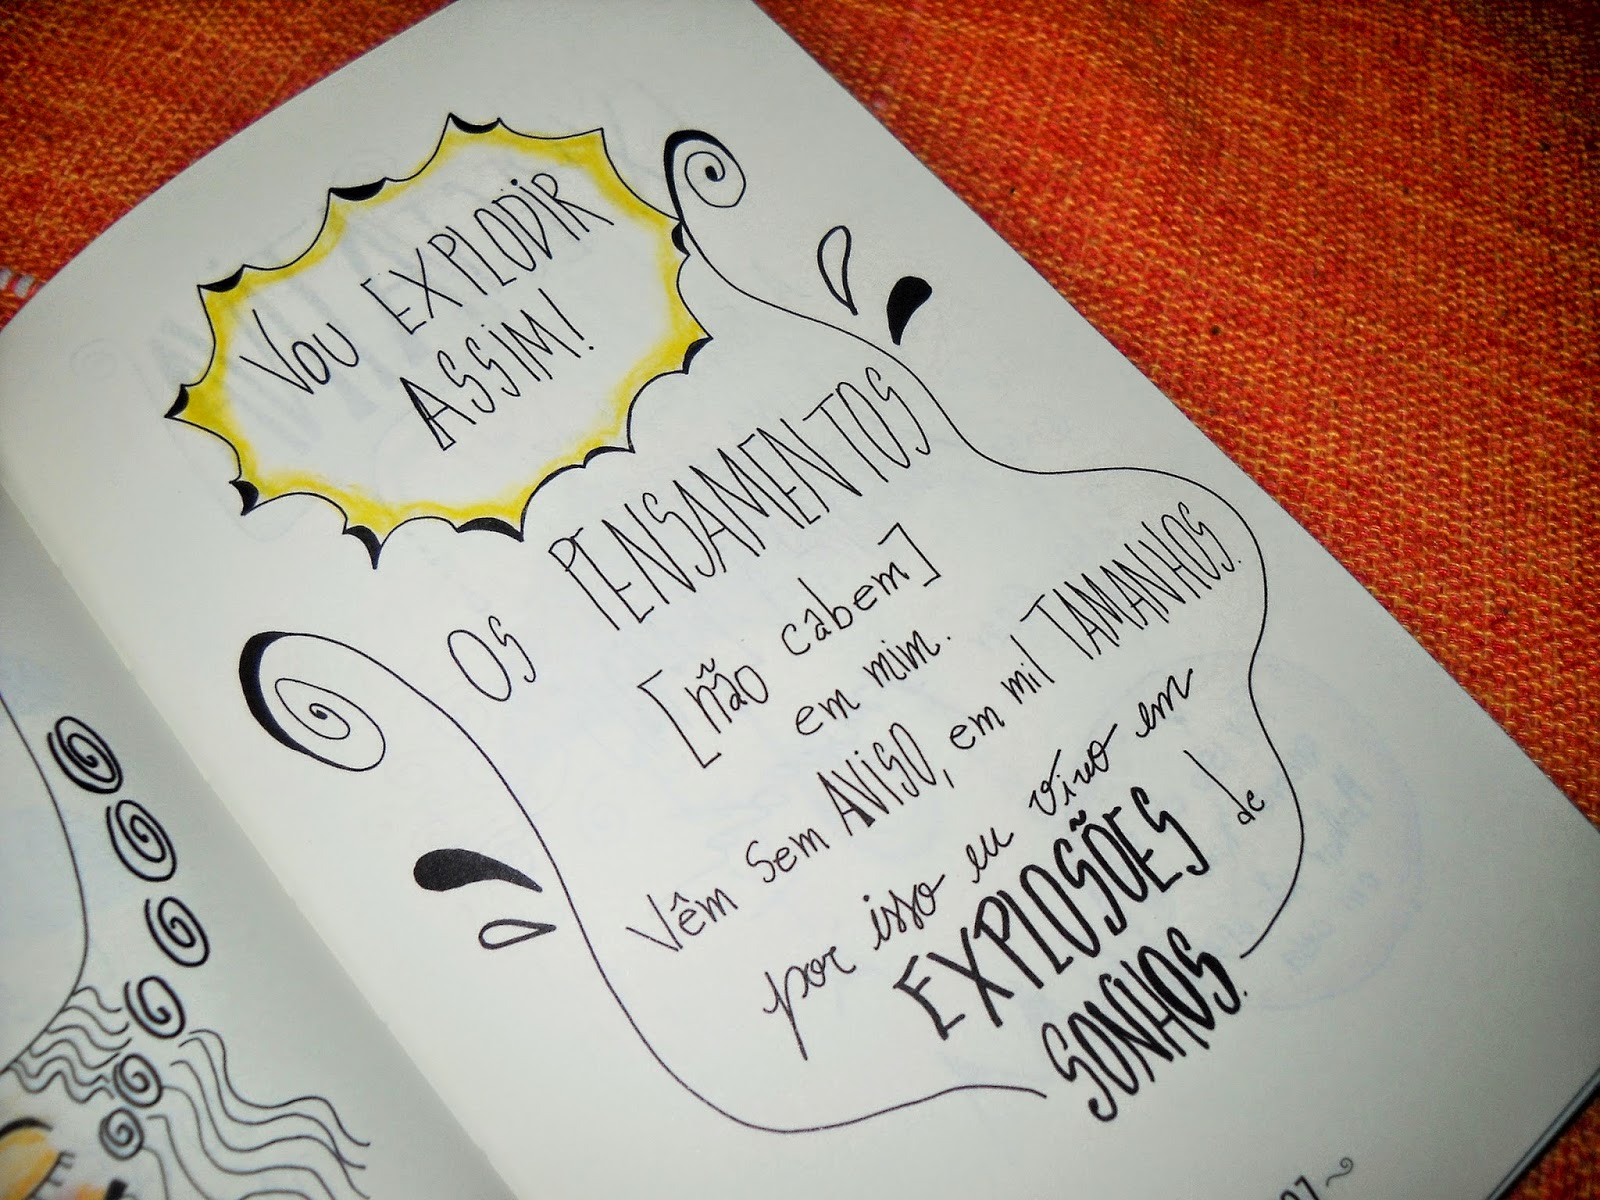 VOU EXPLODIR
ASSIM!
OS PENSAMENTOS
[não cabem]
em mim.
Vêm sem AVISO, em mil TAMANHOS.
por isso eu vivo em
EXPLOSÕES de
SONHOS.